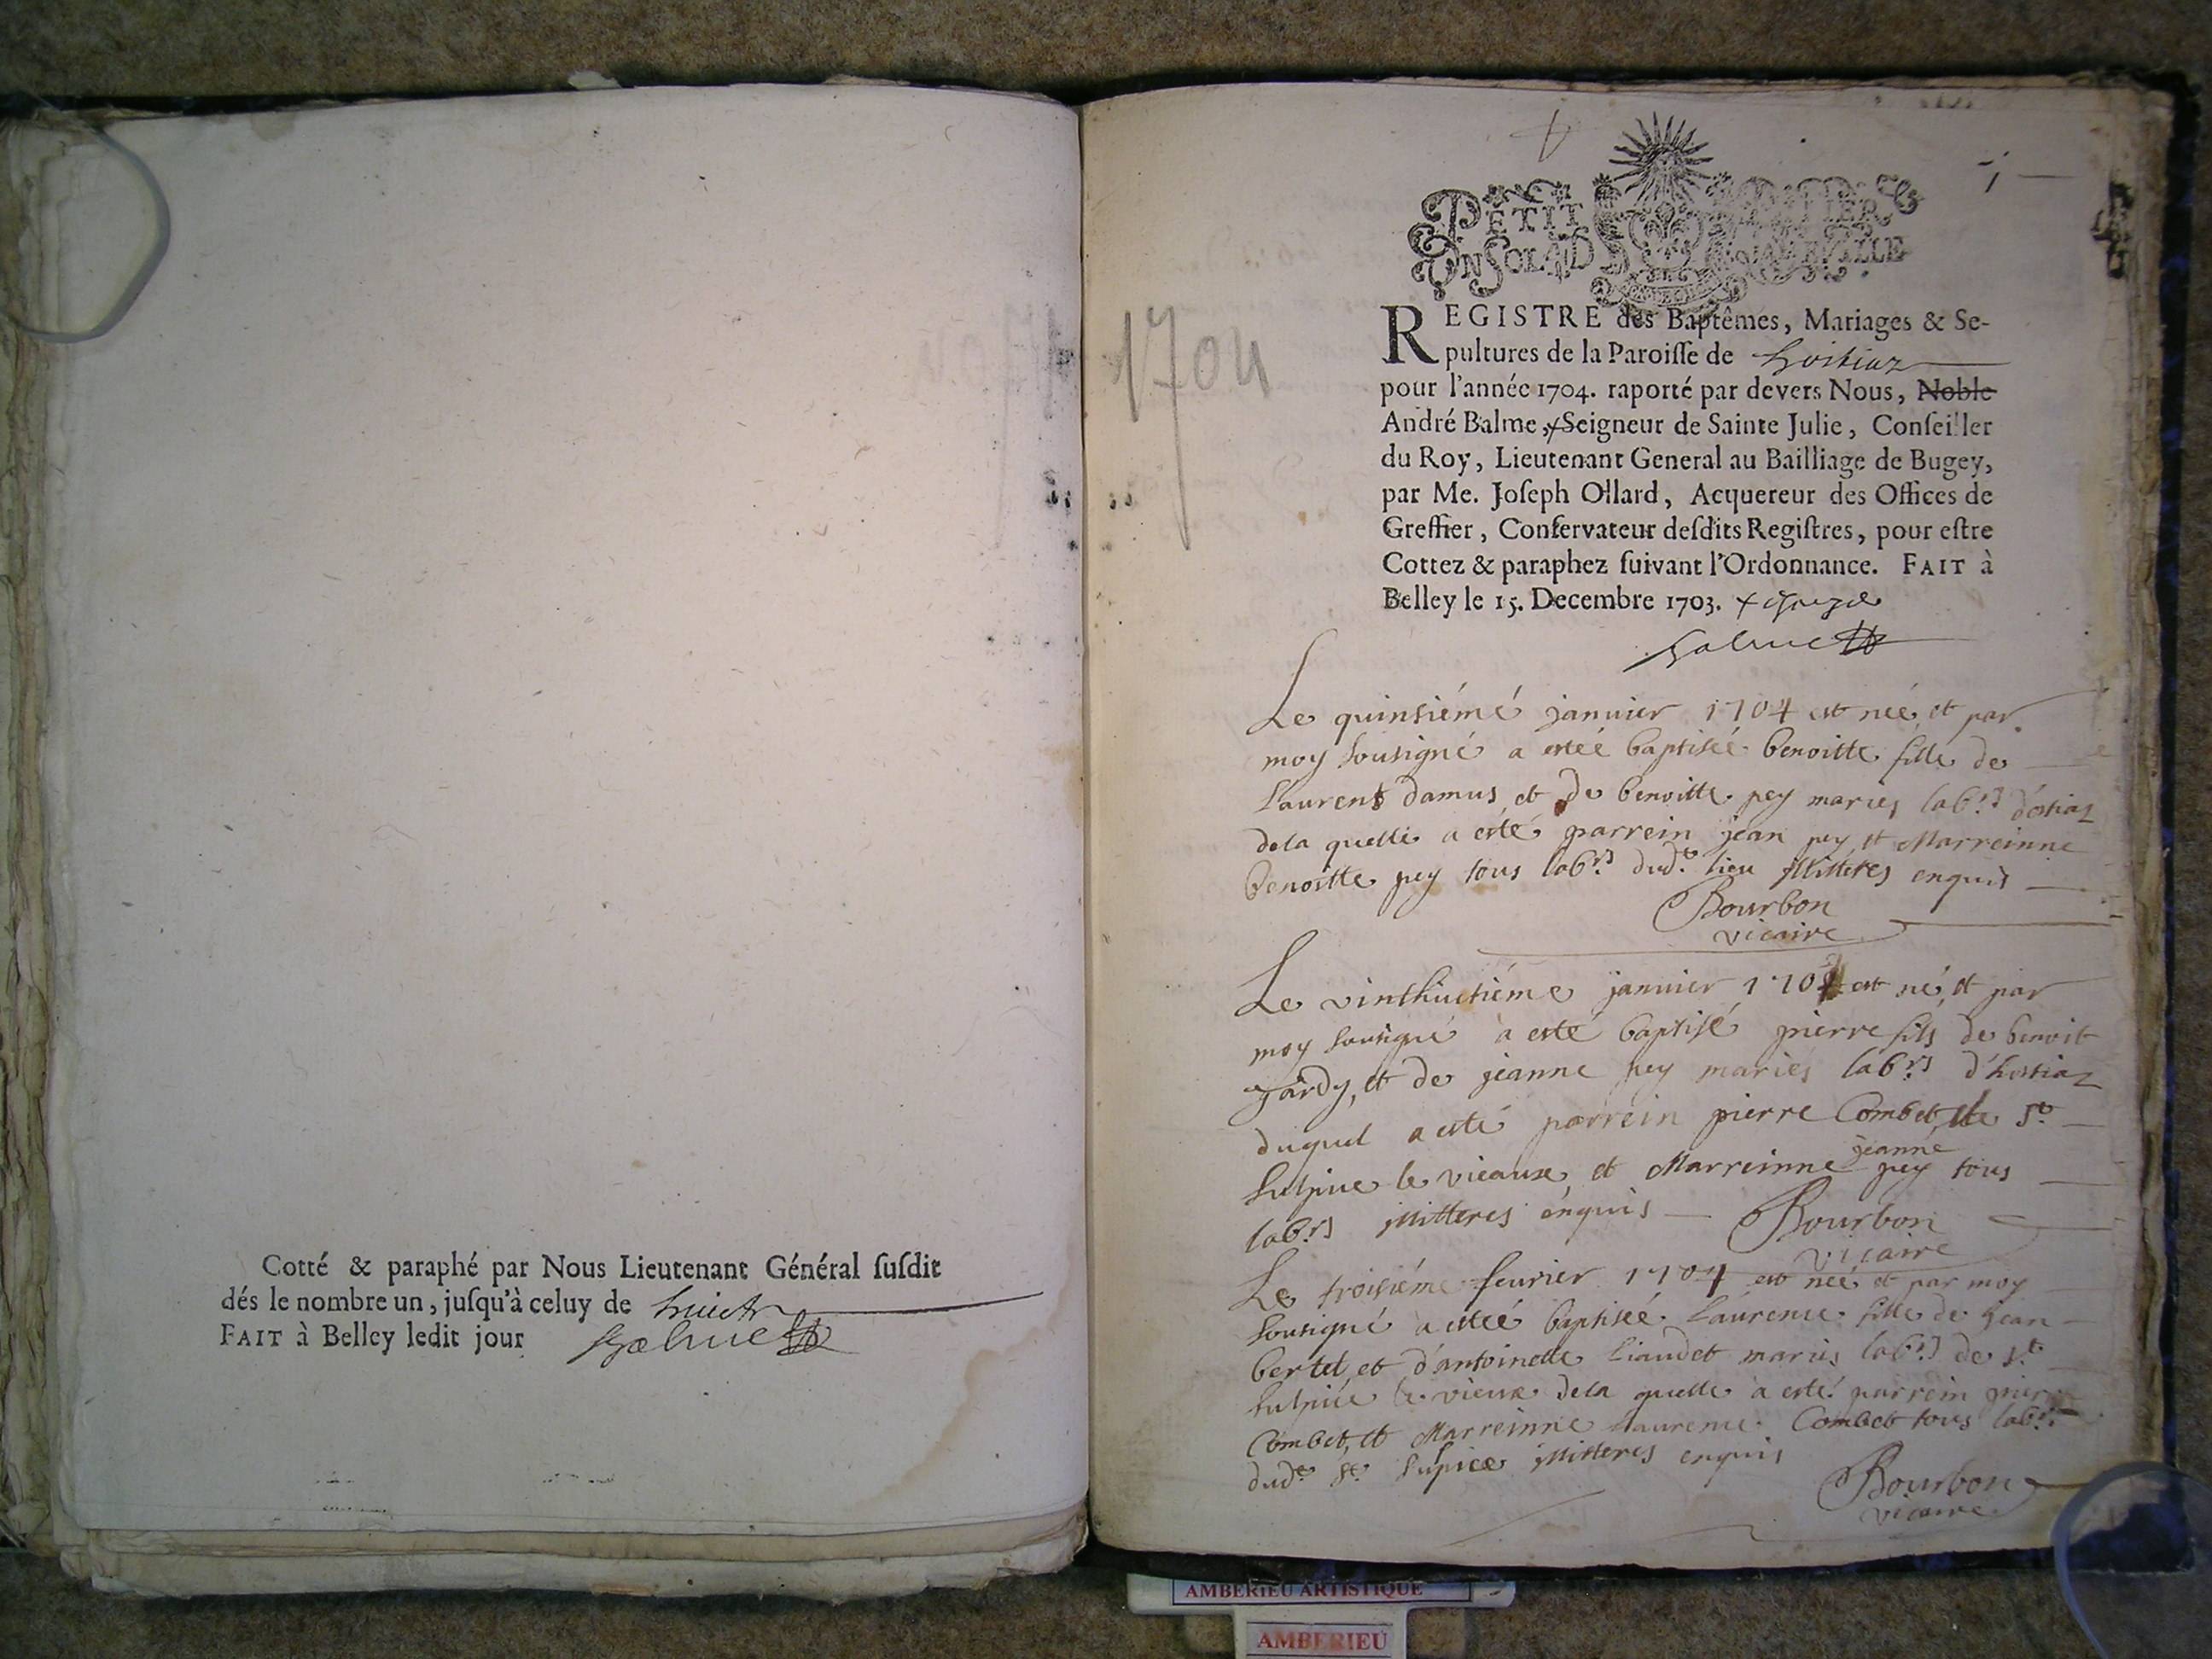 Cotté & paraphé par Nous Lieutenant Général susdit
dés le nombre un, jusqu'à celuy de huict
FAIT à Belley ledit jour Balme
1704
1
PETIT PAPIER
UN SOL LA DEMEVILLE
REGISTRE des Baptêmes, Mariages & Se-
pultures de la Paroisse de hostiaz
pour l'année 1704. raporté par devers Nous, Noble
André Balme, Seigneur de Sainte Julie, Conseiller
du Roy, Lieutenant General au Bailliage de Bugey,
par Me. Joseph Ollard, Acquereur des Offices de
Greffier, Conservateur desdits Registres, pour estre
Cottez & paraphez suivant l'Ordonnance. FAIT à
Belley le 15. Decembre 1703.
Balme
Le quinsiémé janvier 1704 est néé et par
moy sousigné a estéé baptiséé benoitte fille de
Laurent damus et de benoitte pey mariés labrs d'ostiaz
dela quelle a esté parrein jean pey et Marreinne
benoitte pey tous labrs dudt lieu illitterés enquis
Bourbon
vicaire
Le vinthuitiéme janvier 1704 est né et par
moy sousigné a esté baptisé pierre fils de benoit
jardy, et de jeanne pey mariés labrs d'hostiaz
duquel a esté parrein pierre Combet de St
Sulpice le vieaux et Marreinne jeanne pey tous
labrs illitterés énquis Bourbon
vicaire
Le troisiéme feurier 1704 est néé et par moy
sousigné a estéé baptiséé Laurence fille de jean
bertet et d'antoinette Liaudet mariés labrs de St
Sulpice le vieux dela quelle a esté parrein
Combet, et Marreinne Laurence Combet tous labrs
dudt St Supice illitterés enquis
Bourbon
vicaire
AMBERIEU ARTISTIQUE
AMBERIEU